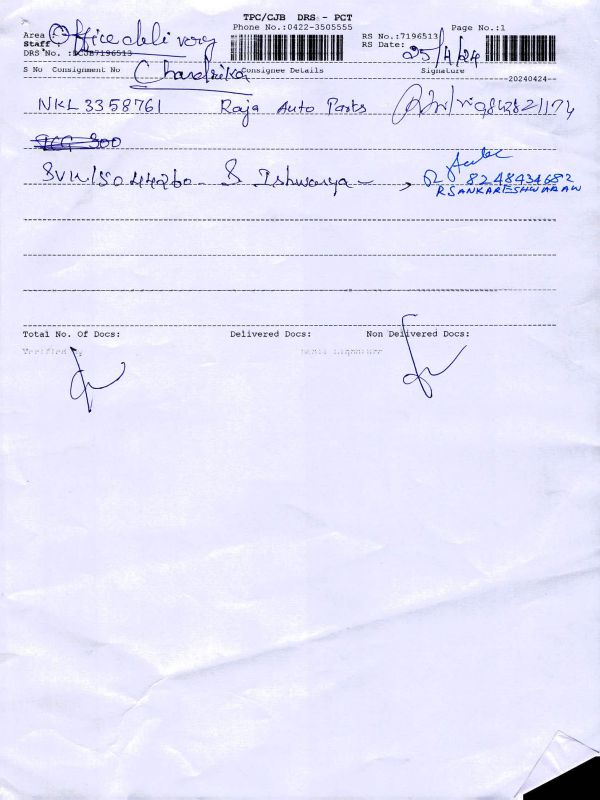 TPC/CJB DRS - PCT
Phone No.:0422-3505555 Page No.:1
Area : Office delivery RS No.:7196513
Staff RS Date: 25/4/24
DRS No. :DCJB7196513
S No Consignment No Chandrika Consignee Details Signature
20240424
NKL 3358761 Raja Auto Parts
300
S Ishwarya
8248434682
R SANKARESHWARAN
Total No. Of Docs: Delivered Docs: Non Delivered Docs:
Verified By